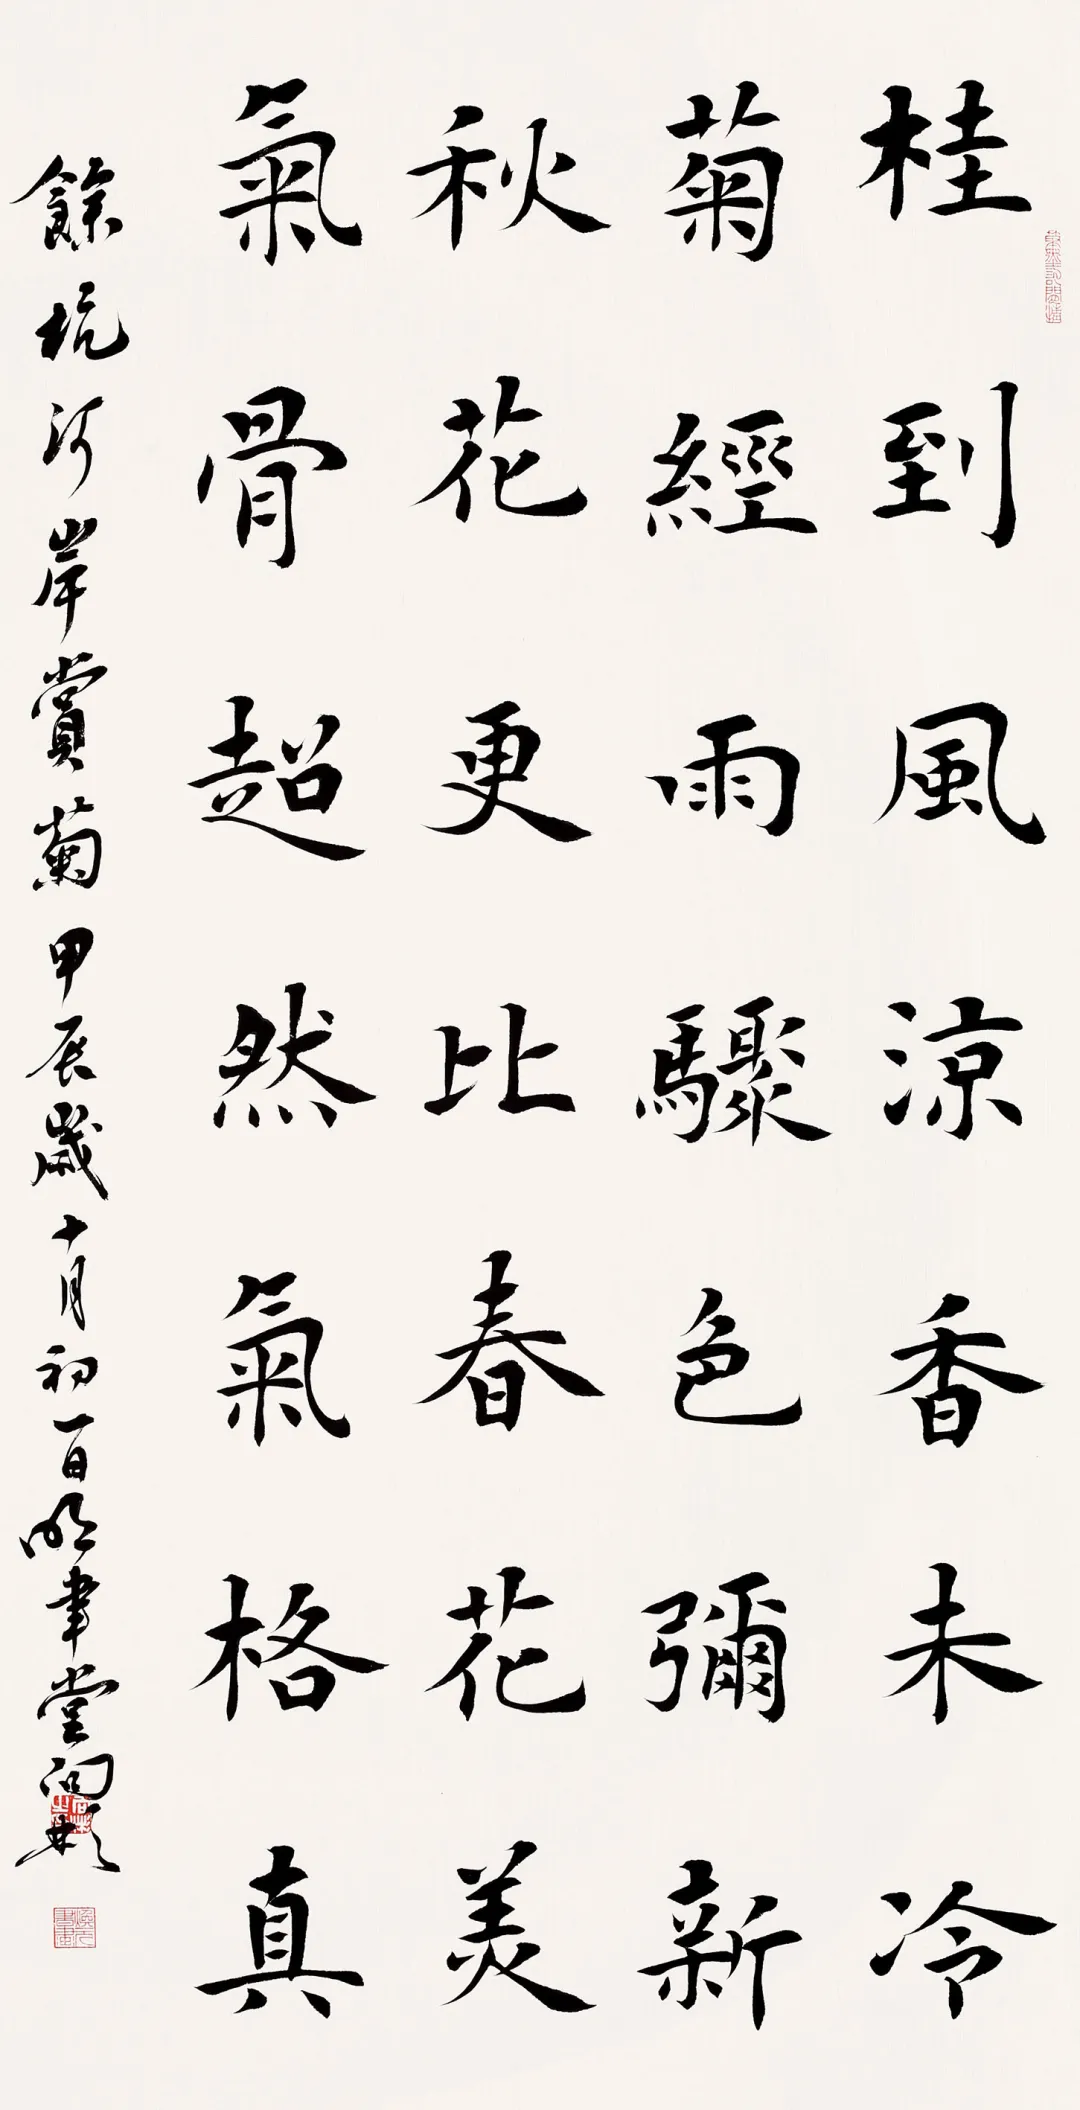 桂到風涼香未冷
菊經雨驟色彌新
秋花更比春花美
氣骨超然氣格真
餘坑河岸賞菊甲辰歲十月初一日明聿堂